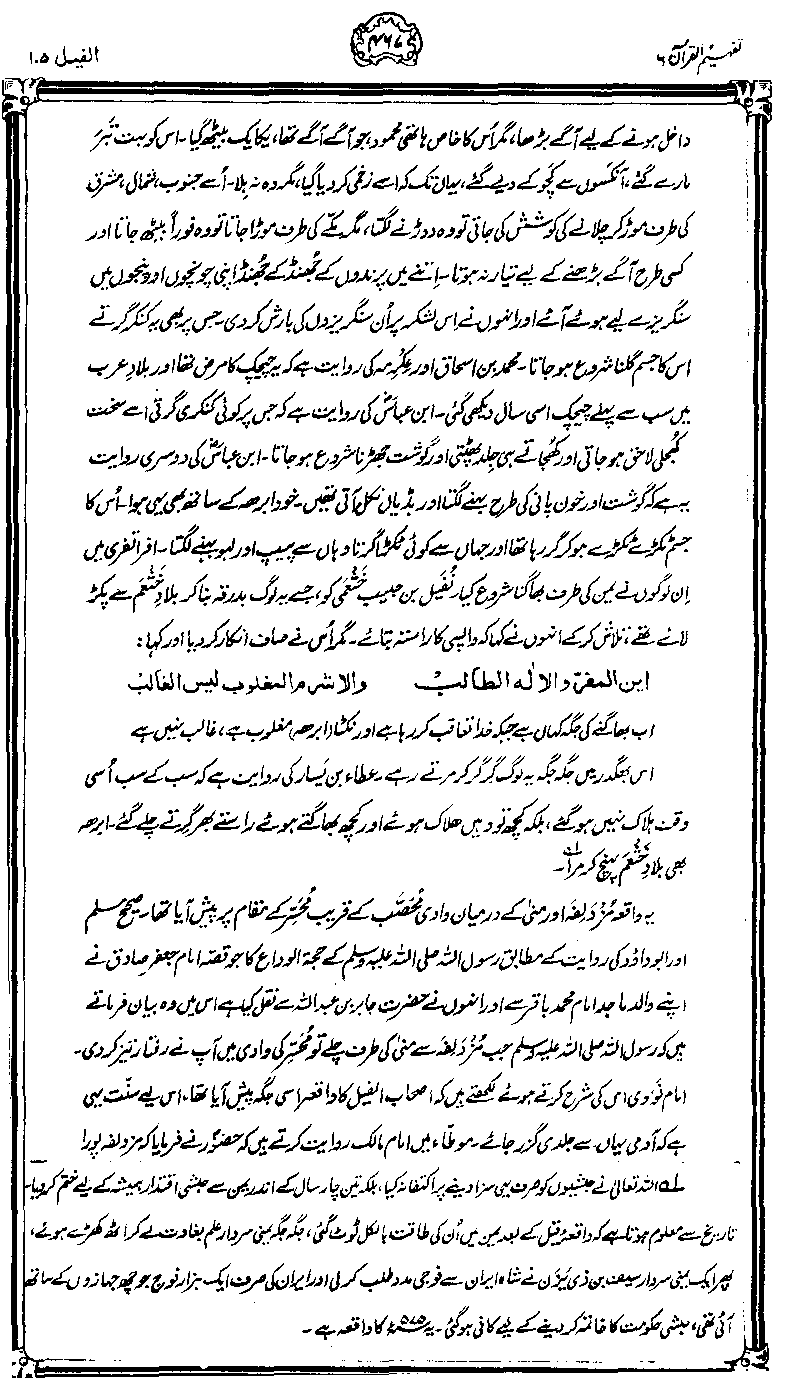 تفہیم القرآن ۶
۴۶۷
الفیل ۱۰۵
داخل ہونے کے لیے آگے بڑھا، مگر اُس کا خاص ہاتھی محمود، جو آگے آگے تھا، یکایک بیٹھ گیا۔ اس کو بہت تبر
مارے گئے، آنکسوں سے کچوکے دیے گئے، یہاں تک کہ اسے زخمی کر دیا گیا، مگر وہ نہ ہلا۔ اُسے جنوب، شمال، مشرق
کی طرف موڑ کر چلانے کی کوشش کی جاتی تو وہ دوڑنے لگتا، مگر مکّے کی طرف موڑا جاتا تو وہ فوراً بیٹھ جاتا اور
کسی طرح آگے بڑھنے کے لیے تیار نہ ہوتا۔ اِتنے میں پرندوں کے جُھنڈ کے جُھنڈ اپنی چونچوں اور پنجوں میں
سنگریزے لیے ہوئے آئے اور انہوں نے اس لشکر پر اُن سنگریزوں کی بارش کر دی۔ جس پر بھی یہ کنکر گرتے
اس کا جسم گلنا شروع ہو جاتا۔ محمد بن اسحاق اور عِکْرِمہ کی روایت ہے کہ یہ چیچک کا مرض تھا اور بلادِ عرب
میں سب سے پہلے چیچک اسی سال دیکھی گئی۔ ابن عباسؓ کی روایت ہے کہ جس پر کوئی کنکری گرتی اسے سخت
کُھجلی لاحق ہو جاتی اور کُھجاتے ہی جِلد پھٹتی اور گوشت جھڑنا شروع ہو جاتا۔ ابن عباسؓ کی دوسری روایت
یہ ہے کہ گوشت اور خون پانی کی طرح بہنے لگتا اور ہڈیاں نکل آتی تھیں۔ خود ابرھہ کے ساتھ بھی یہی ہوا۔ اُس کا
جسم ٹکڑے ٹکڑے ہو کر گر رہا تھا اور جہاں سے کوئی ٹکڑا گرتا وہاں سے پیپ اور لہو بہنے لگتا۔ افراتفری میں
اِن لوگوں نے یمن کی طرف بھاگنا شروع کیا۔ نُفَیل بن حبیب خَثْعَمی کو، جسے یہ لوگ بدرقہ بنا کر بلادِ خَثْعَم سے پکڑ
لائے تھے، تلاش کر کے انہوں نے کہا کہ واپسی کا راستہ بتائے۔ مگر اُس نے صاف انکار کر دیا اور کہا:
این المفرّ والالٰه الطالبْ والاشرم المغلوب لیس الغالبْ
اب بھاگنے کی جگہ کہاں ہے جبکہ خدا تعاقب کر رہا ہے اور نکٹا (ابرھہ) مغلوب ہے، غالب نہیں ہے
اس بھگدڑ میں جگہ جگہ یہ لوگ گر گر کر مرتے رہے۔ عطاء بن یَسار کی روایت ہے کہ سب کے سب اُسی
وقت ہلاک نہیں ہو گئے، بلکہ کچھ تو وہیں ھلاک ہوئے اور کچھ بھاگتے ہوئے راستے بھر گرتے چلے گئے۔ ابرھہ
بھی بلادِ خَثْعَم پہنچ کر مرا۔ لہ
یہ واقعہ مُزْدَلِفہ اور منیٰ کے درمیان وادی مُحَصَّب کے قریب مُحَسِّر کے مقام پر پیش آیا تھا۔ صحیح مسلم
اور ابو داؤد کی روایت کے مطابق رسول اللہ صلی اللہ علیہ وسلم کے حجۃ الوداع کا جو قصّہ امام جعفر صادق نے
اپنے والد ماجد امام محمد باقر سے اور انہوں نے حضرت جابر بن عبداللہ سے نقل کیا ہے اس میں وہ بیان فرماتے
ہیں کہ رسول اللہ صلی اللہ علیہ وسلم جب مُزْدَلِفہ سے منیٰ کی طرف چلے تو مُحَسِّر کی وادی میں آپ نے رفتار تیز کر دی۔
امام نَوَوی اس کی شرح کرتے ہوئے لکھتے ہیں کہ اصحاب الفیل کا واقعہ اسی جگہ پیش آیا تھا، اس لیے سنّت یہی
ہے کہ آدمی یہاں سے جلدی گزر جائے۔ موطّاء میں امام مالک روایت کرتے ہیں کہ حضورؐ نے فرمایا کہ مزدلفہ پورا
لہ اللہ تعالیٰ نے حبشیوں کو صرف یہی سزا دینے پر اکتفا نہ کیا، بلکہ تین چار سال کے اندر یمن سے حبشی اقتدار ہمیشہ کے لیے ختم کر دیا۔
تاریخ سے معلوم ہوتا ہے کہ واقعۂ فیل کے بعد یمن میں اُن کی طاقت بالکل ٹوٹ گئی، جگہ جگہ یمنی سردار علم بغاوت لے کر اٹھ کھڑے ہوئے،
پھر ایک یمنی سردار سیف بن ذی یَزَن نے شاہ ایران سے فوجی مدد طلب کر لی اور ایران کی صرف ایک ہزار فوج جو چھ جہازوں کے ساتھ
آئی تھی، حبشی حکومت کا خاتمہ کر دینے کے لیے کافی ہو گئی۔ یہ ۵۷۵ء کا واقعہ ہے۔